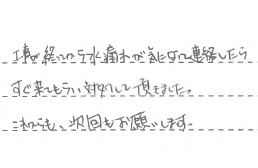 工事が終ってから水漏れが気になって連絡したら
すぐ来てもらい対処して頂きました。
これからも、次回もお願いします。